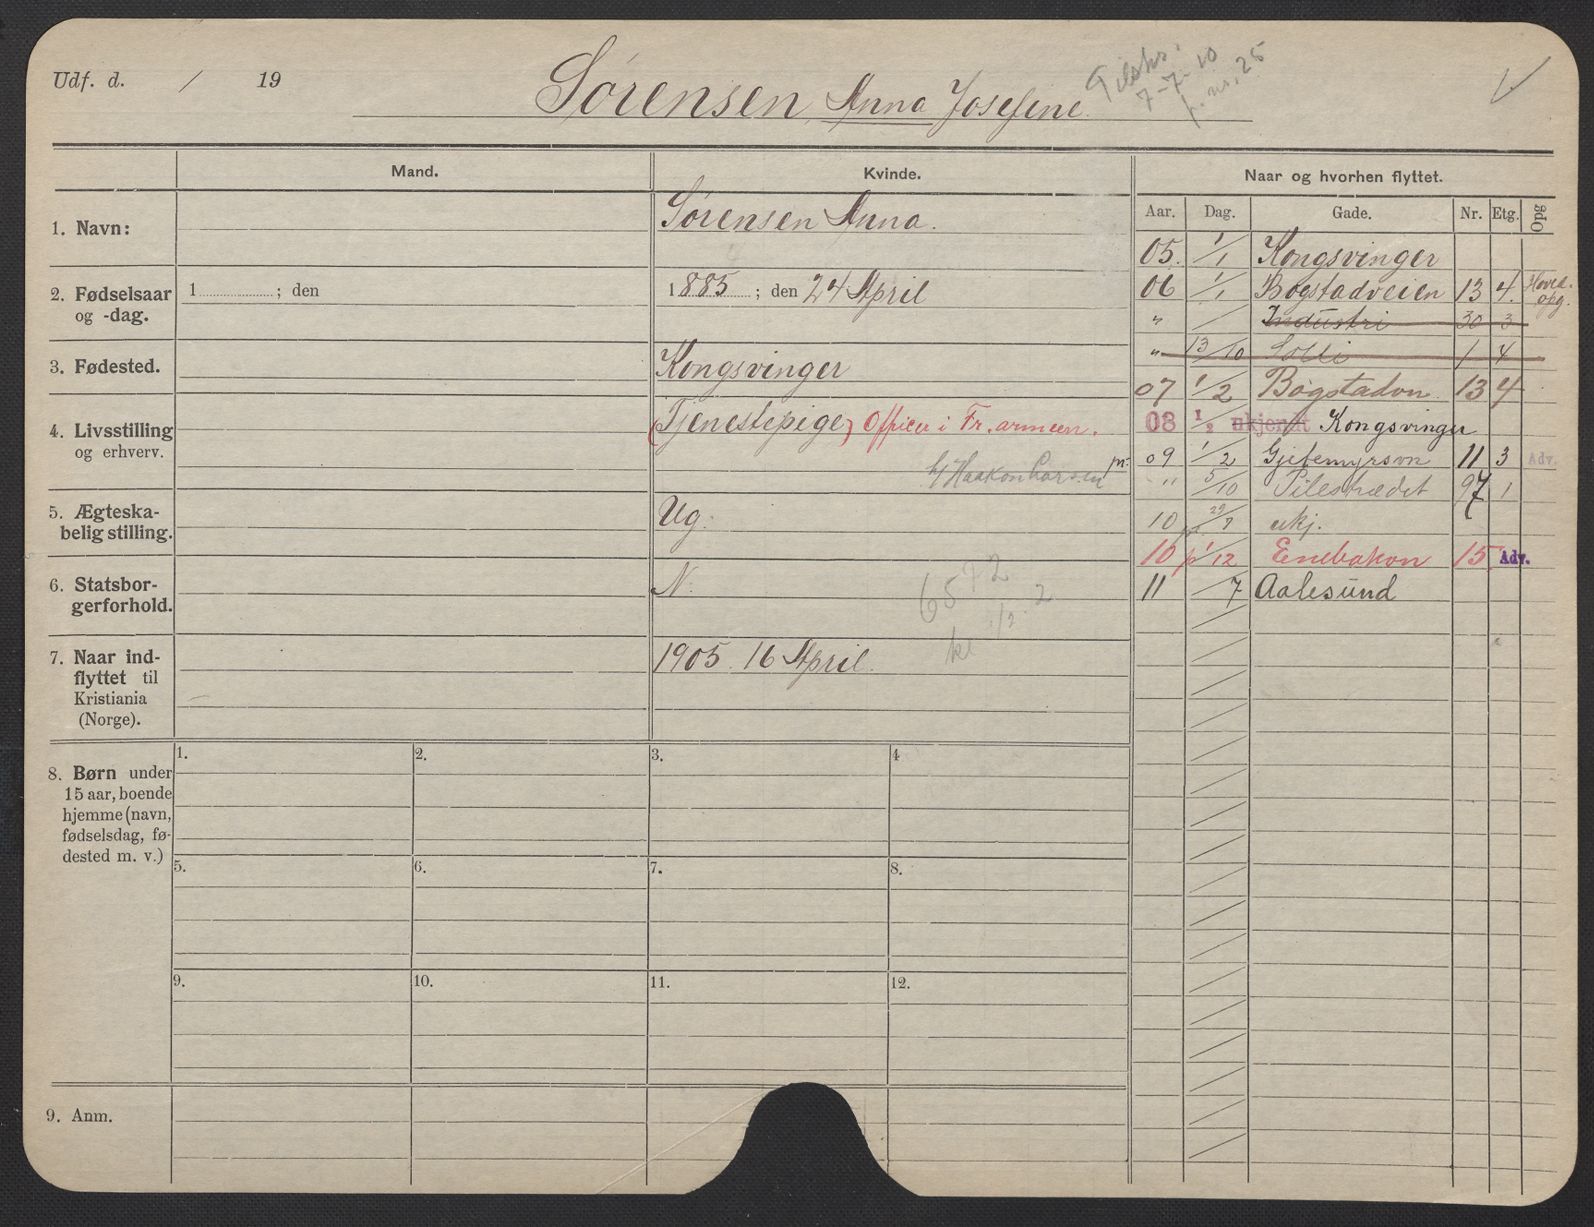 Udf. d. / 19
Sørensen, Anna Josefine.
Tilskr.
7-7-10
p. nr. 25
Mand.
Kvinde.
Naar og hvorhen flyttet.
Aar. Dag. Gade. Nr. Etg. Opg
1. Navn:
Sørensen Anna.
2. Fødselsaar
og -dag.
1 ; den
1885 ; den 24 April
3. Fødested.
Kongsvinger
4. Livsstilling
og erhverv.
(Tjenestepige) Officer i Fr. armeen.
h/ Haakon Larsen
5. Ægteska-
belig stilling.
Ug.
6. Statsbor-
gerforhold.
N.
6572
1/2. 2
kl
7. Naar ind-
flyttet til
Kristiania
(Norge).
1905. 16 April.
05. 1/1 Kongsvinger
06 1/1 Bogstadveien 13 4. Hoved.
opg.
" / Industri 30 3
" 13/10 Solli 1 4
07 1/2 Bogstadvn 13 4
08 1/2 ukjendt Kongsvinger
pr. 09 1/2 Gjetemyrsvn 11 3 Adv.
" 5/10 Pilestrædet 97 1
10 29/7 ukj.
10 p 1/12 Enebakvn 15 Adv.
11 /7 Aalesund
8. Børn under
15 aar, boende
hjemme (navn,
fødselsdag, fø-
dested m. v.)
1. 2. 3. 4
5. 6. 7. 8.
9. 10. 11. 12.
9. Anm.